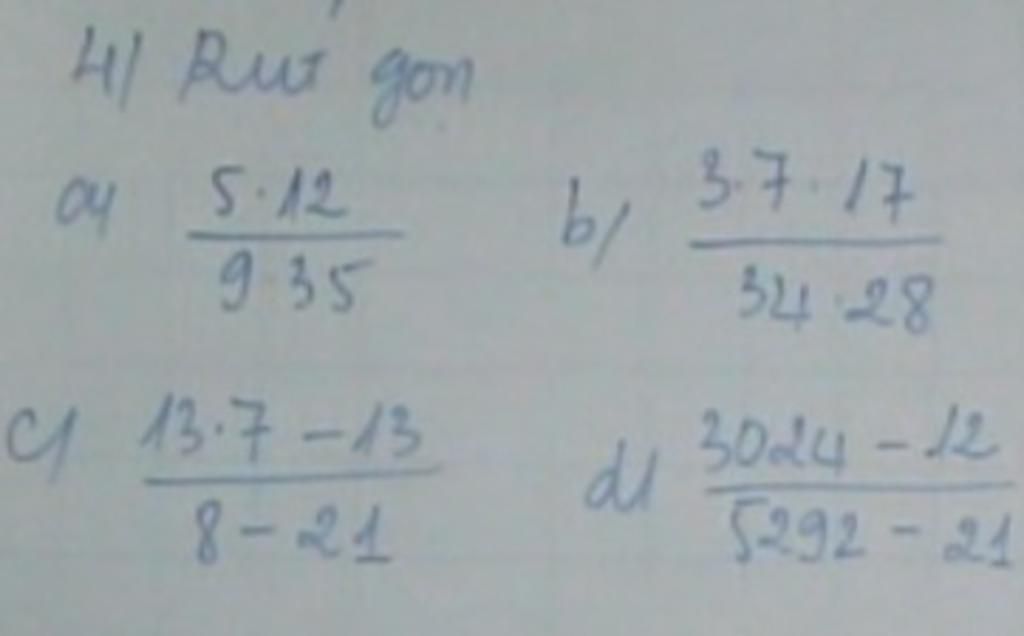 4/ Rút gọn
a/ 5·12 / 9·35 b/ 3·7·17 / 34·28
c/ 13·7 - 13 / 8 - 21 d/ 3024 - 12 / 5292 - 21